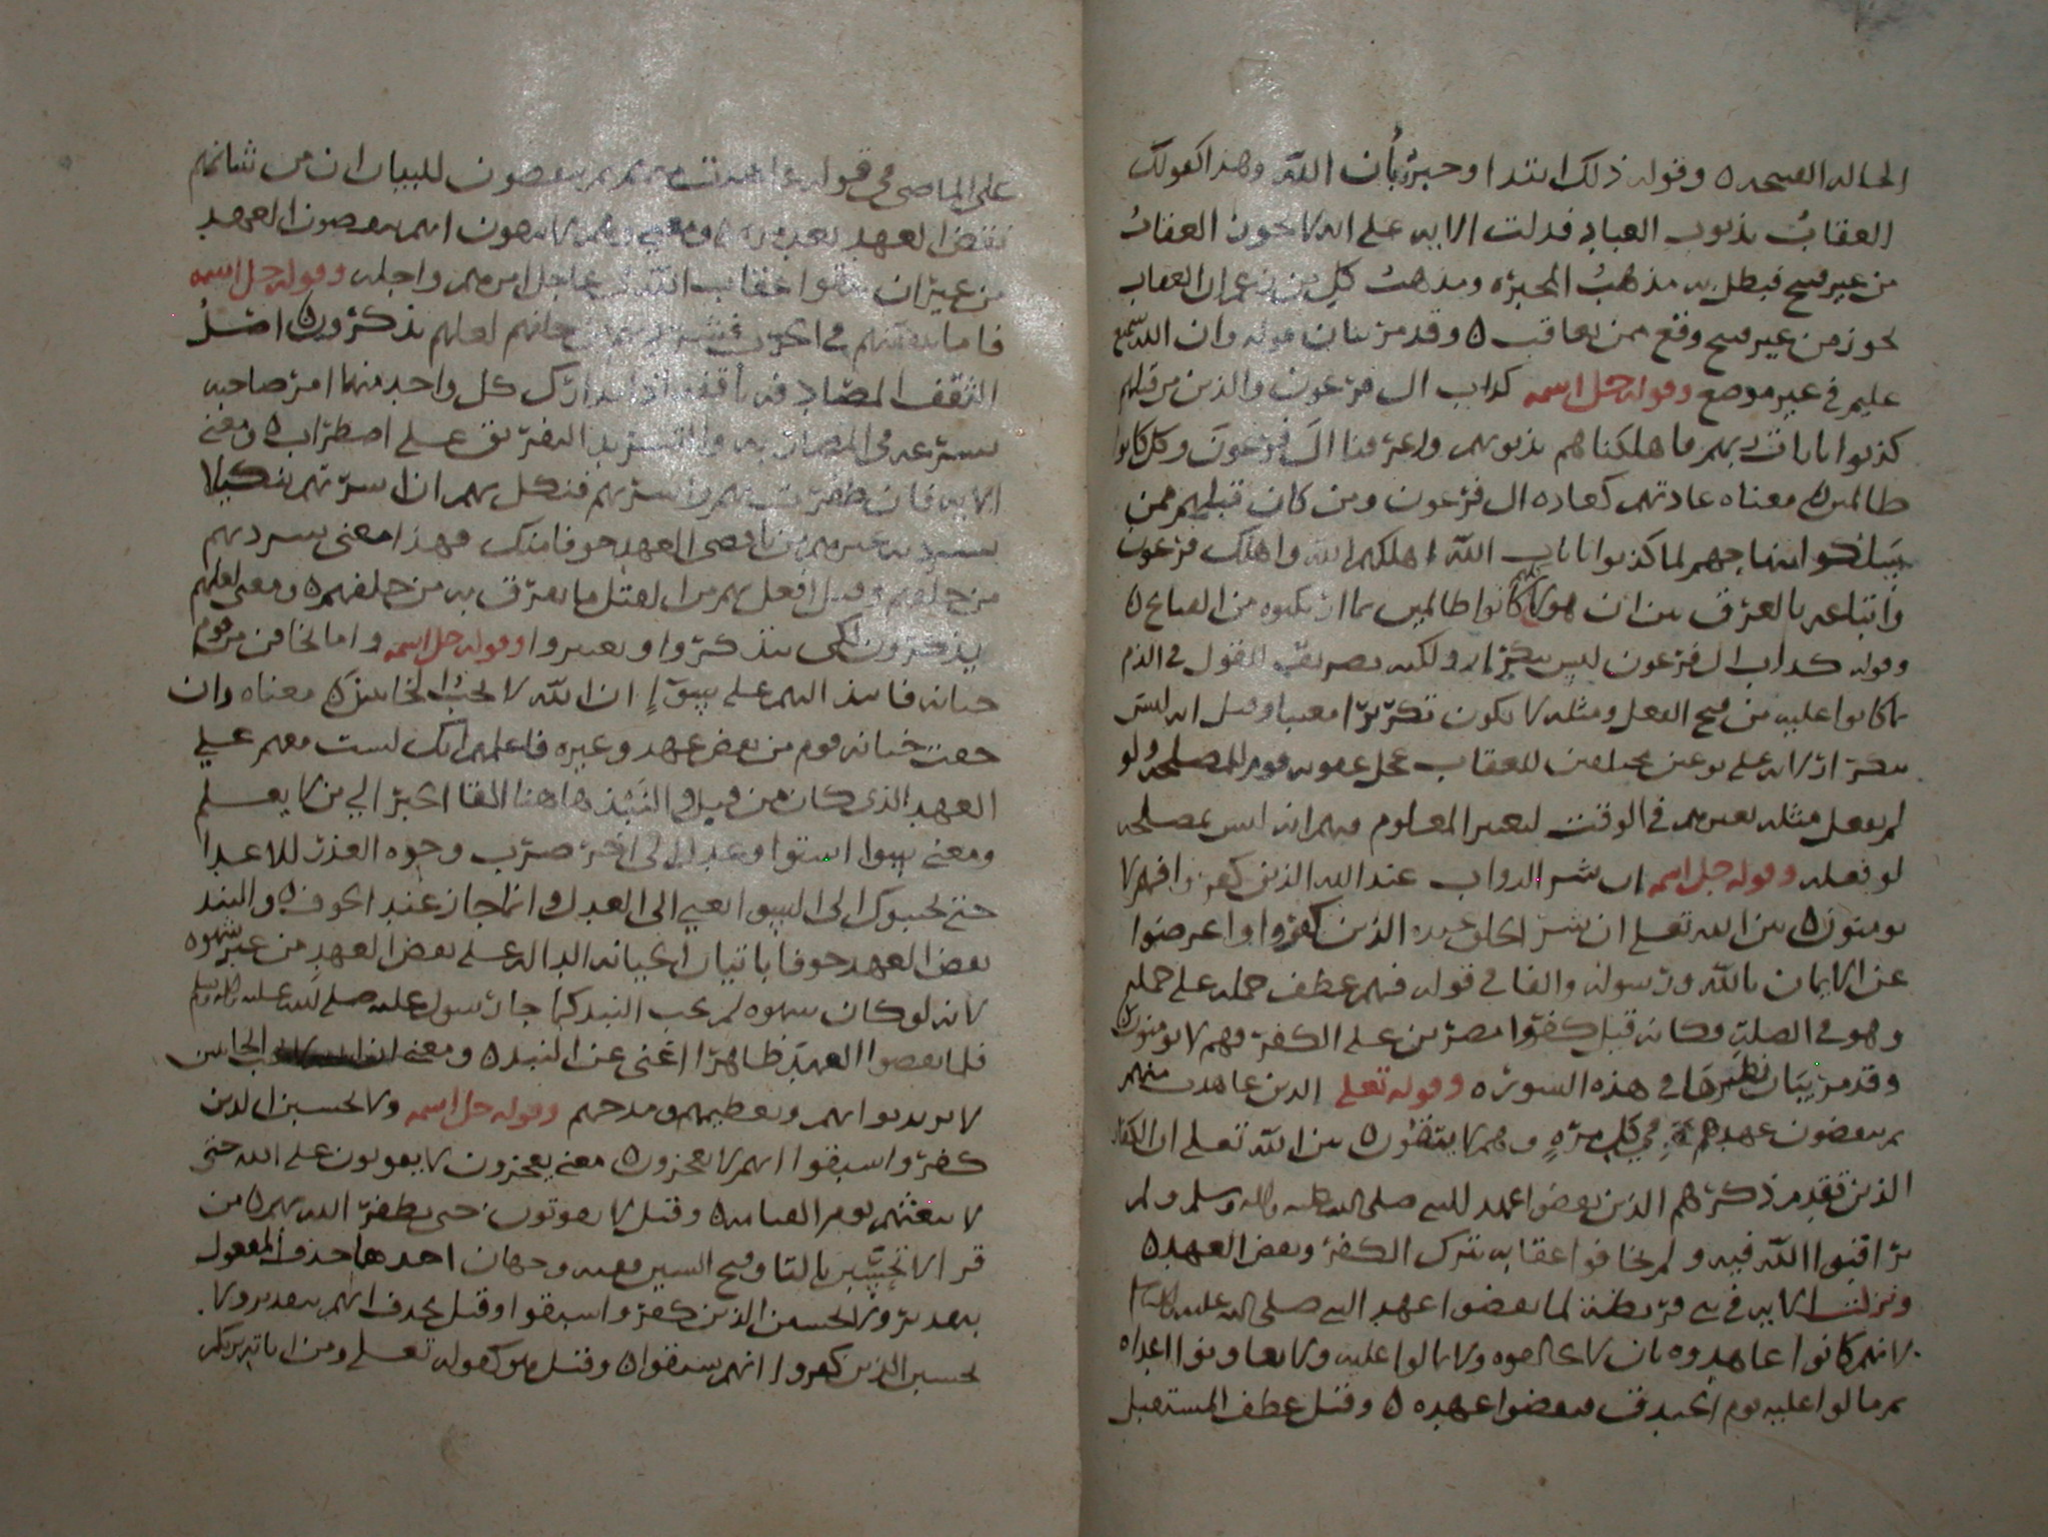 الحاله القبيحه ٥ وقوله ذلك ابتدا وخبره بأن الله وهذا كقولك
العقاب بذنوب العباد فدلت الايه على انه لا يجوز العقاب
من غير قبيح فبطل به مذهب المجبره ومذهب كل من زعم ان العقاب
يجوز من غير قبيح وقع ممن يعاقب ٥ وقد مر بيان قوله وان الله سميع
عليم في غير موضع وقوله جل اسمه كداب ال فرعون والذين من قبلهم
كذبوا بايات ربهم فاهلكناهم بذنوبهم واغرقنا ال فرعون وكل كانوا
ظالمين ٥ معناه عادتهم كعاده ال فرعون ومن كان قبلهم ممن
سلكوا منهاجهم لما كذبوا بايات الله اهلكهم الله واهلك فرعون
واتباعه بالغرق بين ان هولا كلهم كانوا ظالمين بما ارتكبوه من القبايح ٥
وقوله كداب ال فرعون ليس بتكرار ولكنه تصريف للقول في الذم
بما كانوا عليه من قبح الفعل ومثله لا يكون تكريرا معيبا وقيل انه ليس
بتكرار لانه على نوعين مختلفين للعقاب عجل عقوبه قوم للمصلحه ولو
لم يفعل مثله بغيرهم في الوقت لتغير المعلوم فيهم انه ليس بمصلحه
لو فعله وقوله جل اسمه ان شر الدواب عند الله الذين كفروا فهم لا
يومنون ٥ بين الله تعلى ان شر الخلق عنده الذين كفروا واعرضوا
عن الايمان بالله ورسوله والفا في قوله فهم عطف جمله على جمله
وهو في الصله وكانه قيل كفروا مصرين على الكفر فهم لا يومنون ٥
وقد مر بيان نظيرها في هذه السوره وقوله تعلى الذين عاهدت منهم
ثم ينقضون عهدهم في كل مره وهم لا يتقون ٥ بين الله تعلى ان الكفار
الذين تقدم ذكرهم الذين نقضوا عهد النبي صلى الله عليه واله وسلم ولم
يراقبوا الله فيه ولم يخافوا عقابه بترك الكفر ونقض العهد ٥
ونزلت الايه في بني قريظه لما نقضوا عهد النبي صلى الله عليه
لانهم كانوا عاهدوه بان لا يحالفوه ولا يمالوا عليه ولا يعاونوا اعداه
ثم مالوا عليه يوم الخندق فنقضوا عهده ٥ وقيل عطف المستقبل
على الماضي في قوله عاهدت منهم ثم ينقضون للبيان ان من شانهم
نقض العهد بعد مره ومعنى وهم لا يتقون انهم ينقضون العهد
من غير ان يتقوا عقاب الله عاجل امرهم واجله وقوله جل اسمه
فاما تثقفنهم في الحرب فشرد بهم من خلفهم لعلهم يذكرون ٥ اصل
الثقف المصادفه يدرك كل واحد منهما امر صاحبه
بسرعه في المصادفه والتشريد التفريق على اضطراب ٥ ومعنى
الايه فان ظفرت بهم واسرتهم فنكل بهم ان اسرتهم تنكيلا
يشرد به غيرهم من ناقضي العهد خوفا منك فهذا معنى فشرد بهم
من خلفهم وقيل افعل بهم من القتل ما يفرق به من خلفهم ٥ ومعنى لعلهم
يذكرون لكي يتذكروا ويعتبروا وقوله جل اسمه واما تخافن من قوم
خيانه فانبذ اليهم على سوا ان الله لا يحب الخاينين ٥ معناه وان
خفت خيانه قوم من نقض عهد وغيره فاعلمهم انك لست معهم على
العهد الذي كان من قبل والنبذ هاهنا القا الخبر الى من لا يعلم
ومعنى سوا استوا وعدل
حتى يجيبوك الى السوا يعني الى العدل وانما جاز عند الخوف ٥ والنبذ
نقض العهد خوفا باتيان الخيانه الداله على نقض العهد من غير شهره
لانه لو كان شهره لم يجب النبذ كما جا رسول عليه صلى الله عليه واله وسلم
فلما نقضوا العهد ظاهرا اغنى عن النبذ ٥ ومعنى الخاينين
لا يريد ثوابهم وتعظيمهم ومدحهم وقوله جل اسمه ولا تحسبن الذين
كفروا سبقوا انهم لا يعجزون ٥ معنى يعجزون لا يفوتون على الله حتى
لا يبعثهم يوم القيامه ٥ وقيل لا يفوتون حتى يظفر الله بهم ٥ من
قرا لا تحسبن بالتا وفتح السين ففيه وجهان احدهما حذف المفعول
بتقدير ولا تحسبن الذين كفروا سبقوا وقيل بحذف انهم بتقدير ولا
تحسبن الذين كفروا انهم سبقوا ٥ وقيل هو كقوله تعلى ومن اياته يريكم